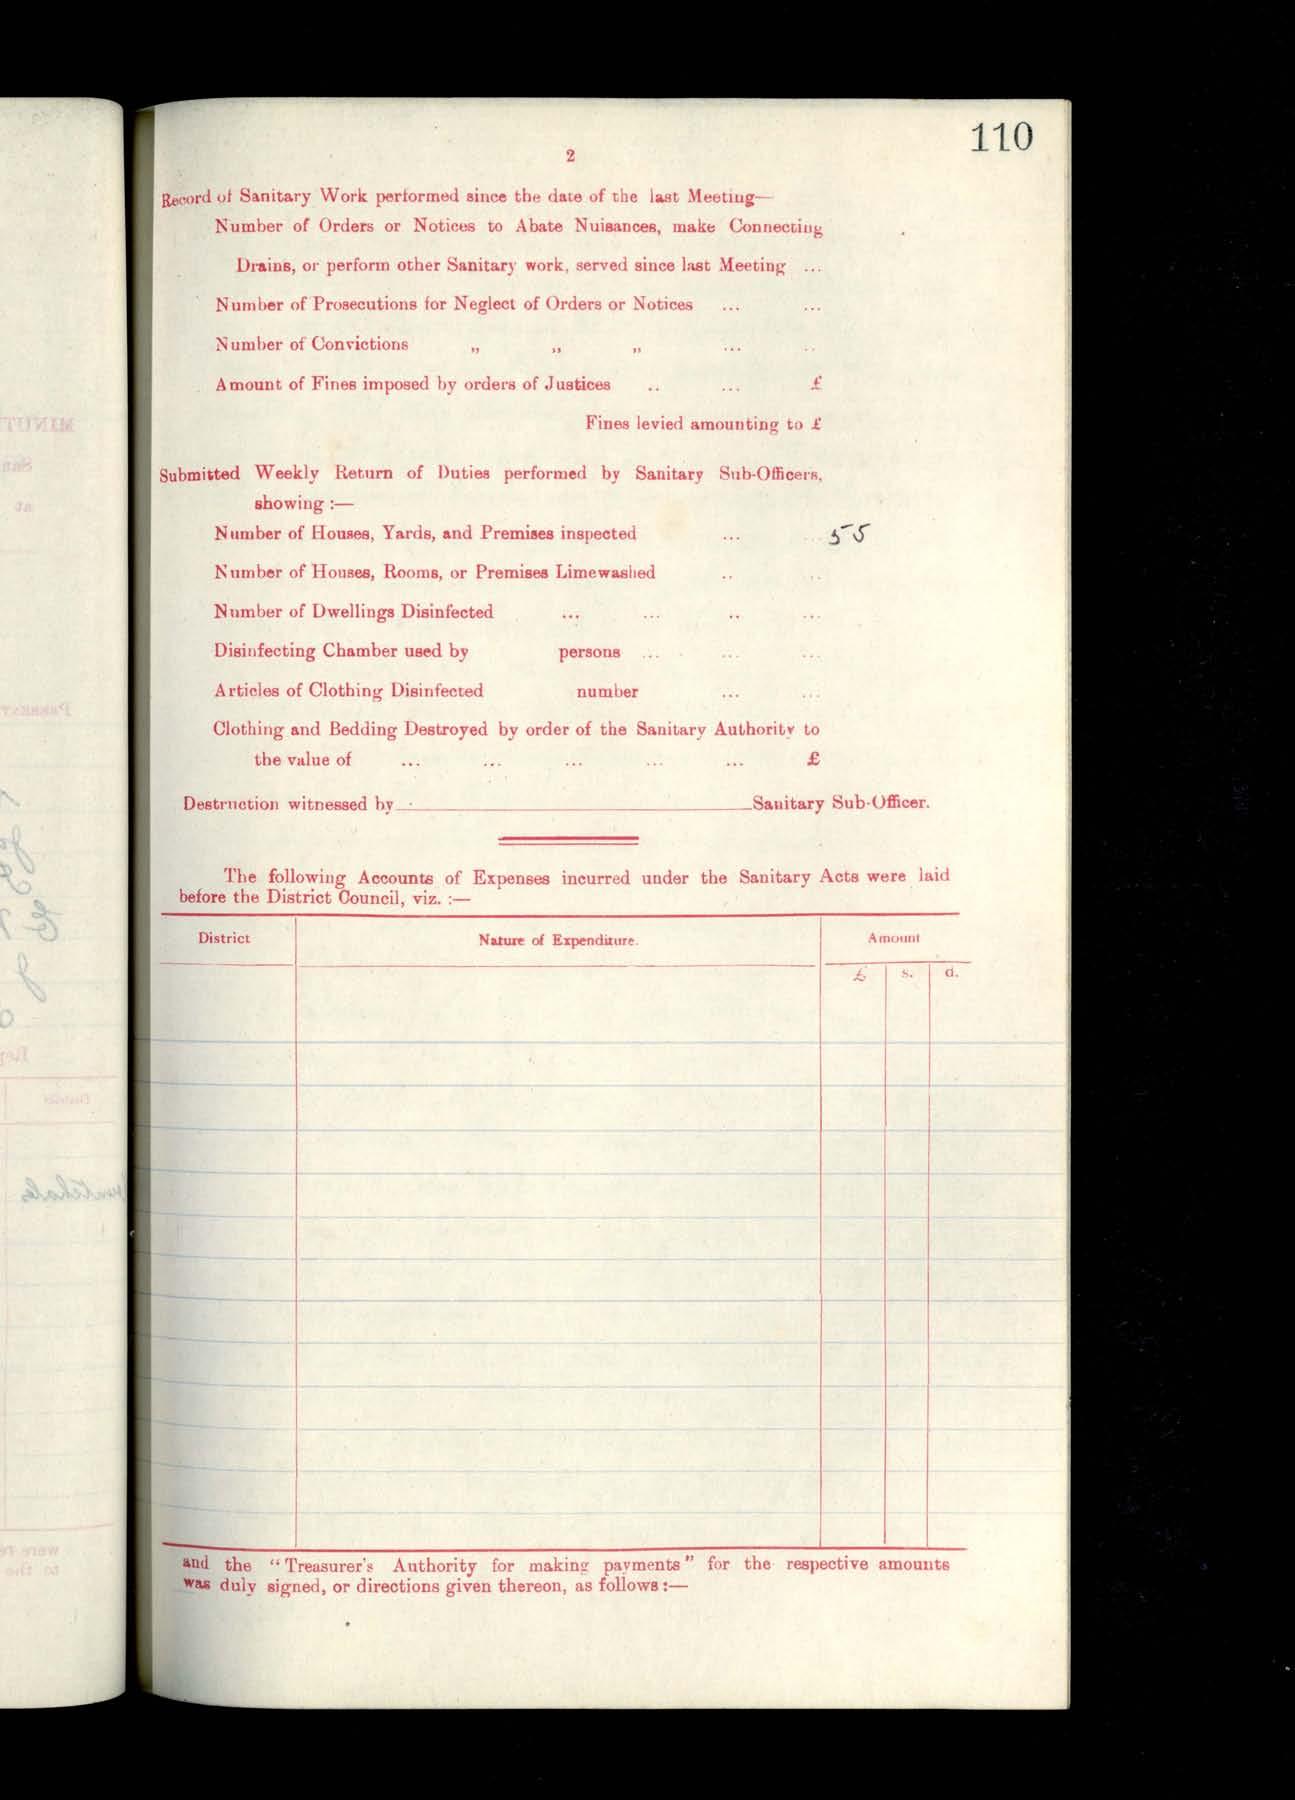 110
2
Record of Sanitary Work performed since the date of the last Meeting—
Number of Orders or Notices to Abate Nuisances, make Connecting
Drains, or perform other Sanitary work, served since last Meeting ...
Number of Prosecutions for Neglect of Orders or Notices ... ...
Number of Convictions „ „ „ ... ..
Amount of Fines imposed by orders of Justices .. ... £
Fines levied amounting to £
Submitted Weekly Return of Duties performed by Sanitary Sub-Officers,
showing :—
Number of Houses, Yards, and Premises inspected ... .. 55
Number of Houses, Rooms, or Premises Limewashed .. ..
Number of Dwellings Disinfected ... ... .. ...
Disinfecting Chamber used by persons ... ... ...
Articles of Clothing Disinfected number ... ...
Clothing and Bedding Destroyed by order of the Sanitary Authority to
the value of ... ... ... ... ... £
Destruction witnessed by Sanitary Sub-Officer.
The following Accounts of Expenses incurred under the Sanitary Acts were laid
before the District Council, viz. :—
District Nature of Expenditure. Amount
£ s. d.
and the "Treasurer's Authority for making payments" for the respective amounts
was duly signed, or directions given thereon, as follows :—